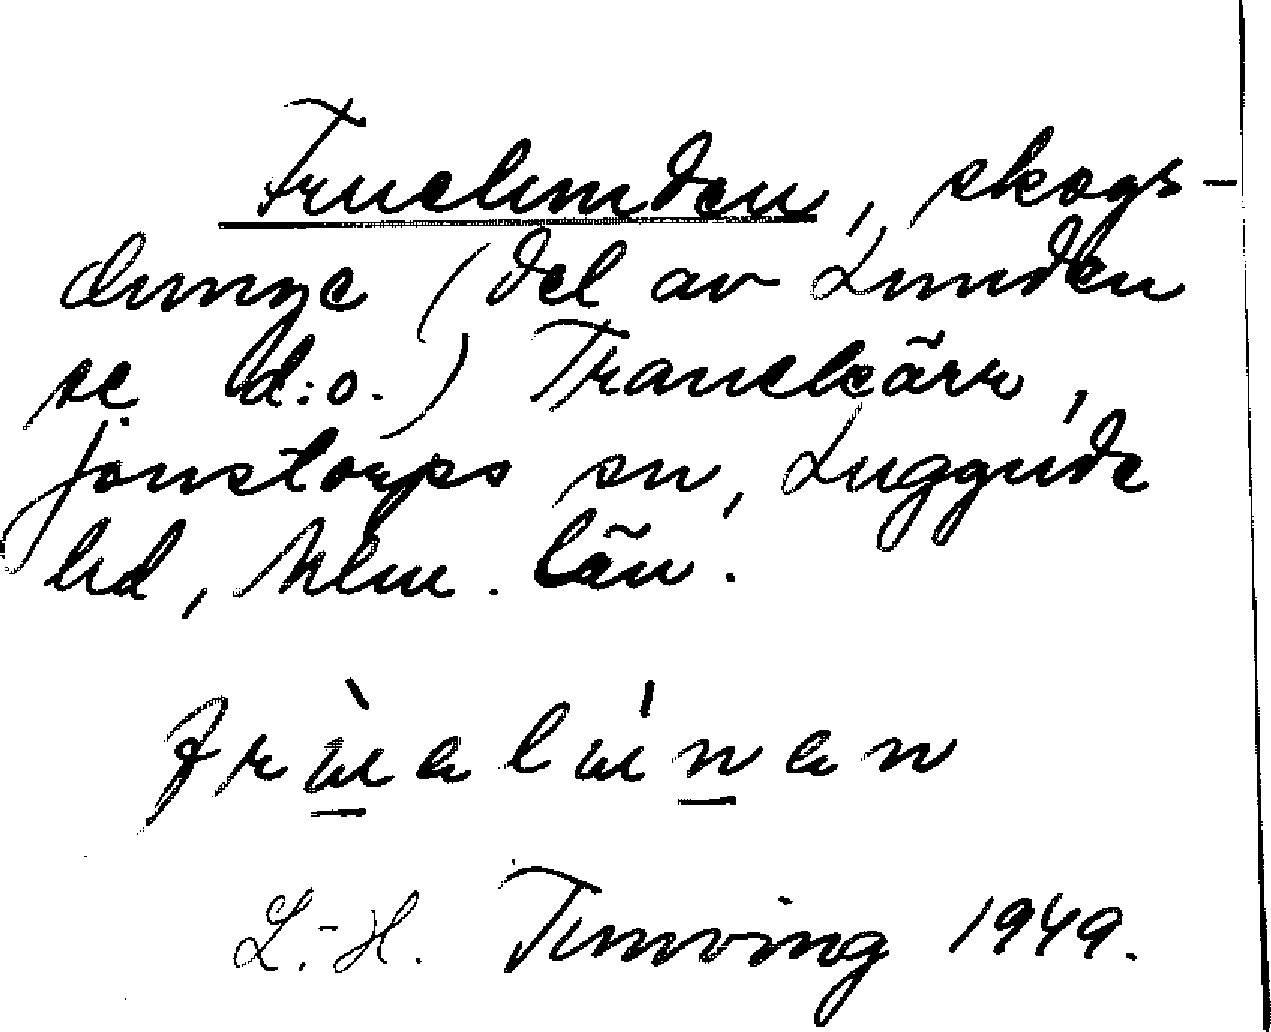 Fruelunden, skogs-
dunge (del av Lunden
se d:o.) Tranekärr,
Jonstorps sn, Luggude
hd, Mlm. län.
frùₑlúnen
L.-H. Tunving 1949.